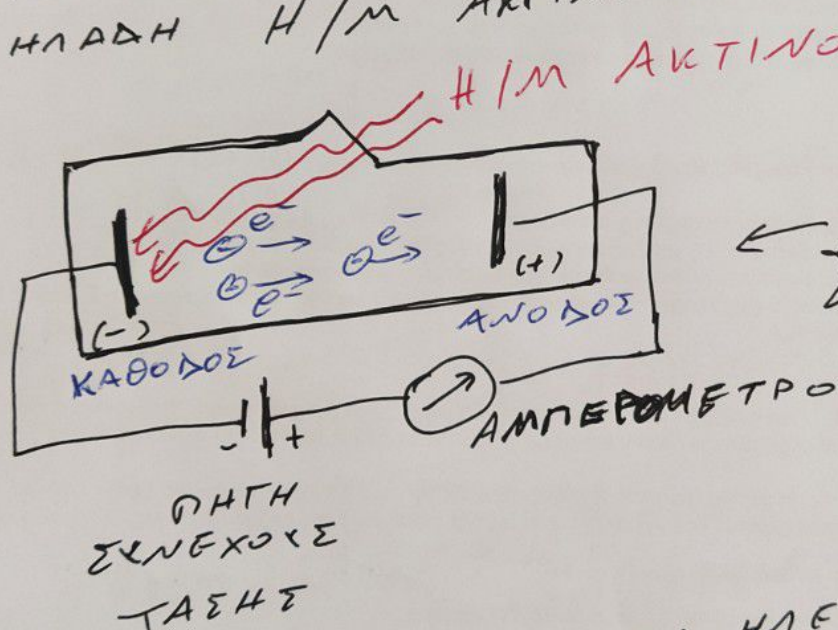 ΗΛΑΔΗ Η/Μ
Η/Μ ΑΚΤΙΝΟ
e⁻
e⁻
e⁻
(+)
(-)
ΑΝΟΔΟΣ
ΚΑΘΟΔΟΣ
- +
ΑΜΠΕΡΟΜΕΤΡΟ
ΠΗΓΗ
ΣΥΝΕΧΟΥΣ
ΤΑΣΗΣ
ΗΛΕ